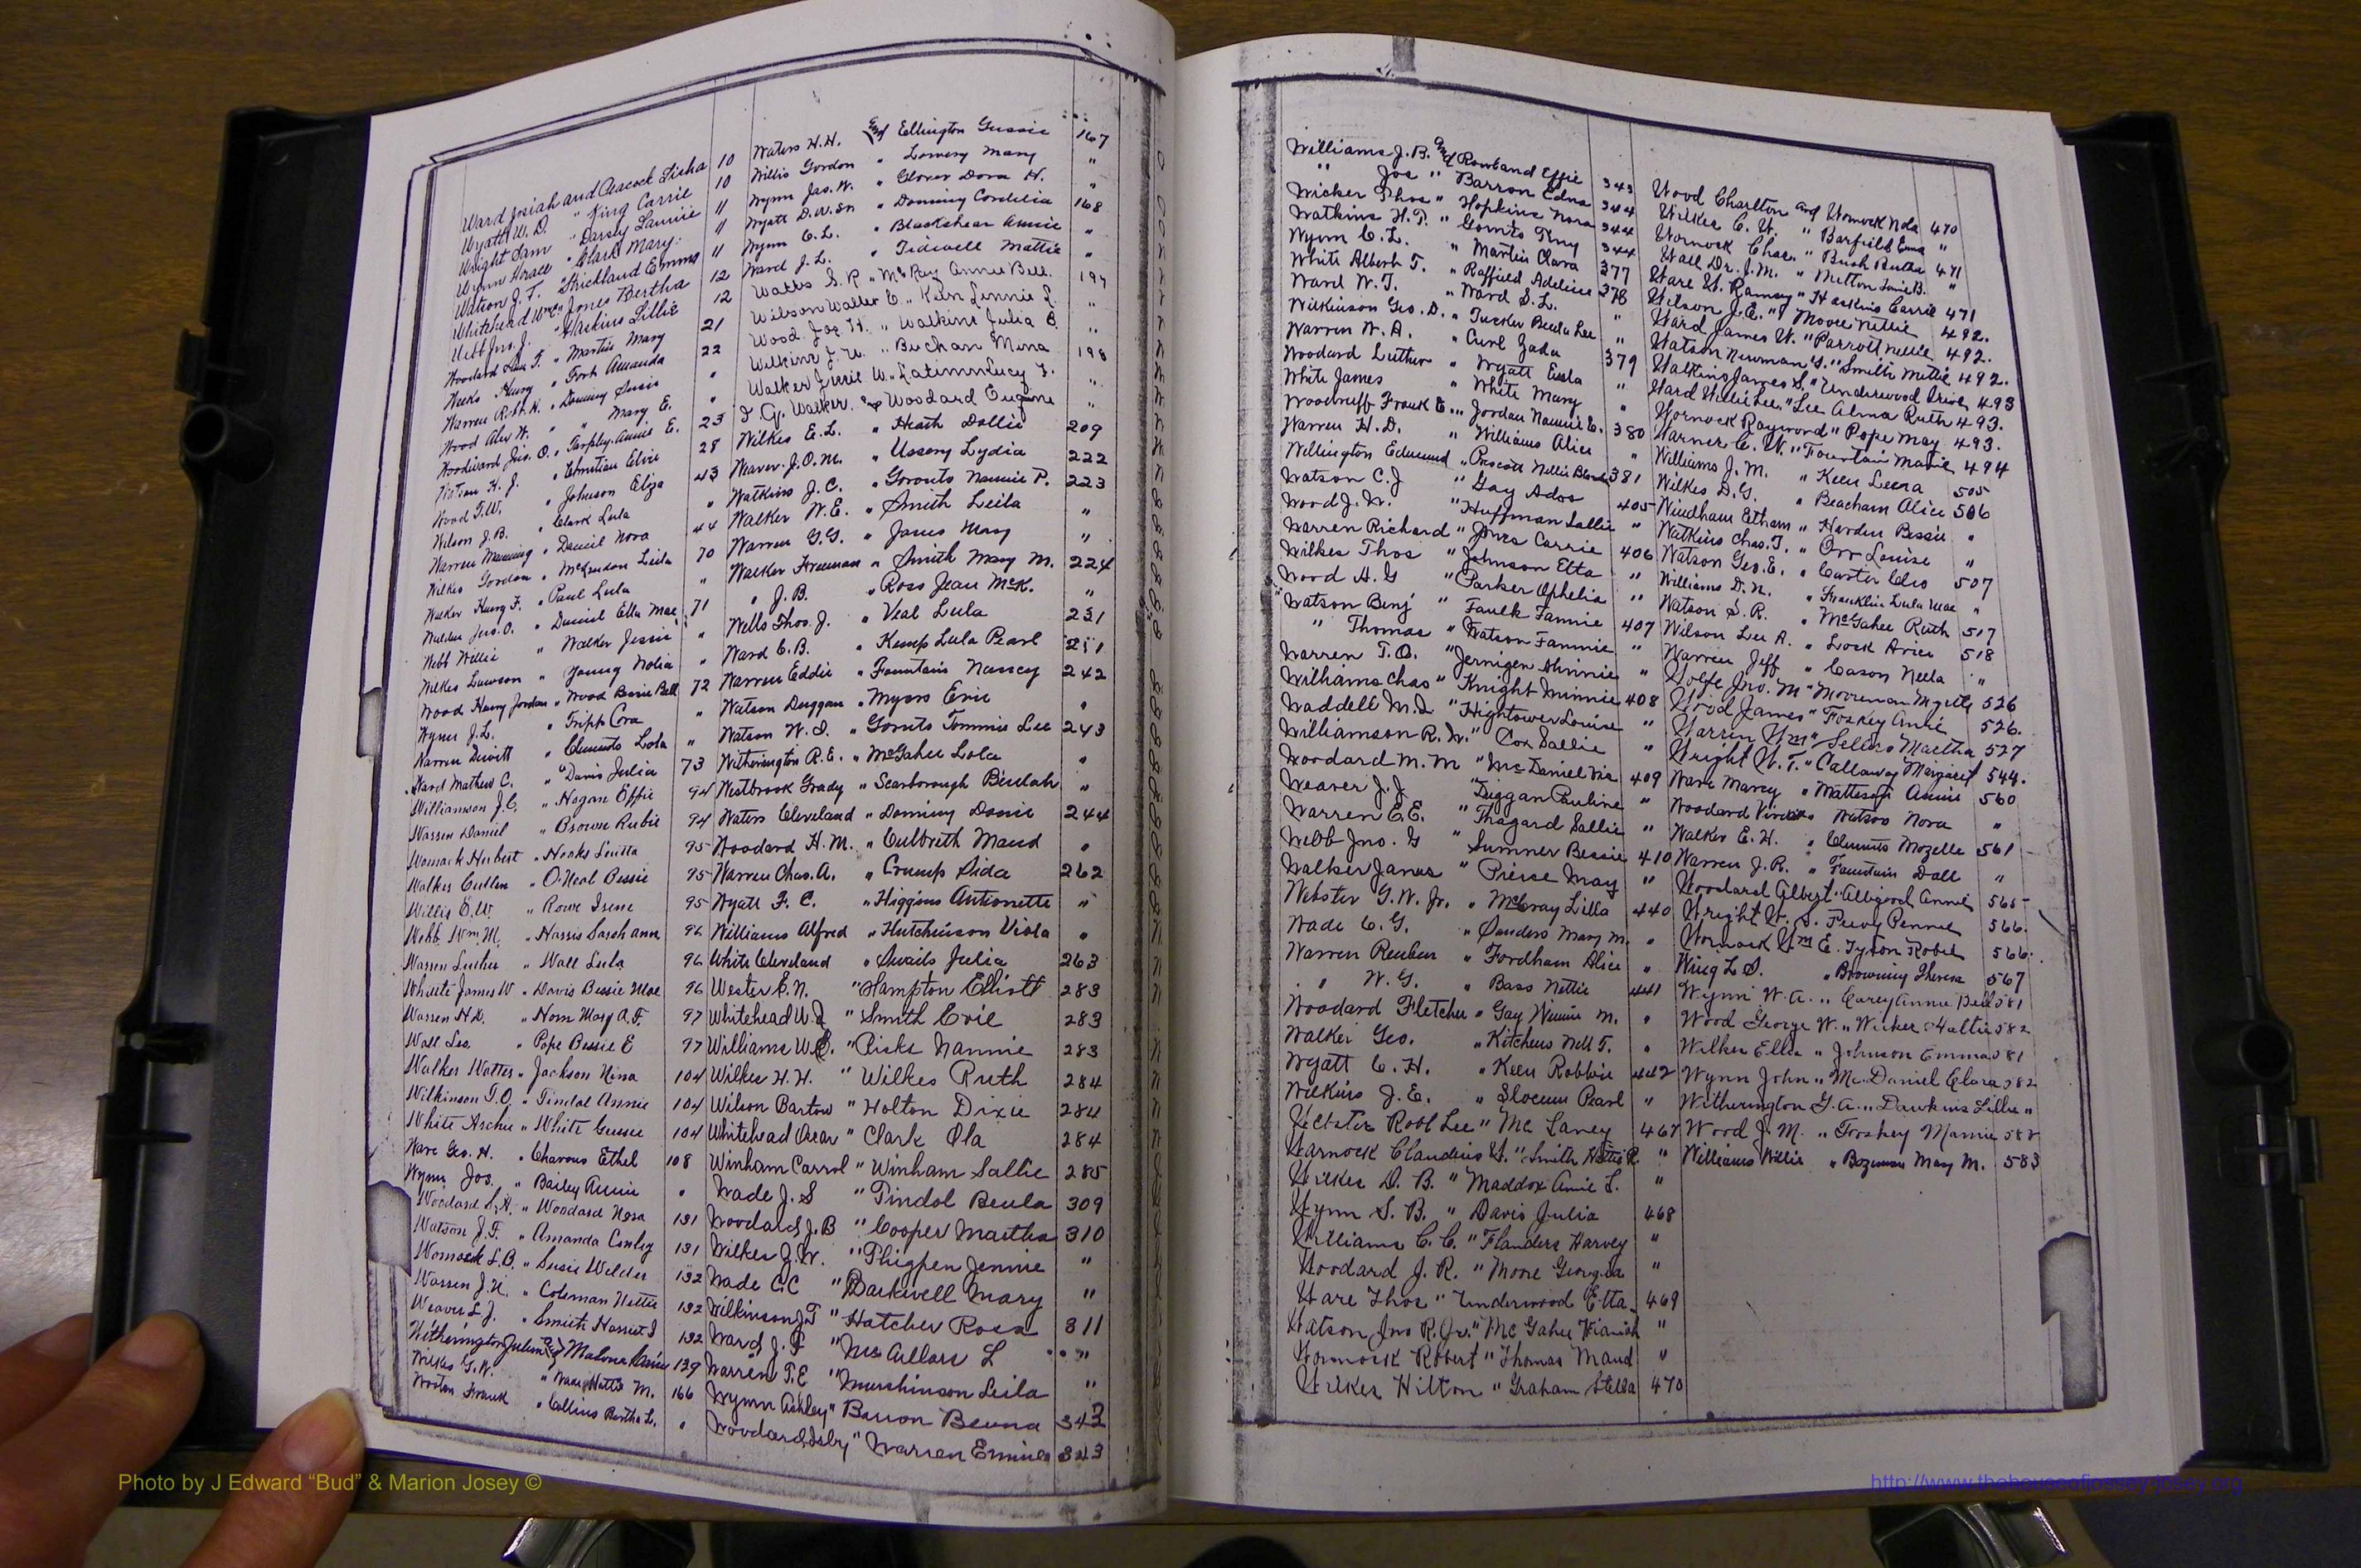 Ward Josiah and Peacock Lisha 10
Wyatt W. D. " King Carrie 10
Wright Sam " Darsey Lannie 11
Wynn Horace " Clark Mary 11
Watson J. T. " Strickland Emma 11
Whitehead Wm " Jones Bertha 12
Webb Jno. J. " Haskins Lillie 12
Woodard " Martin Mary 21
Weeks Henry " Fort Amanda 22
Warren Robt. H. " Doming Susie "
Wood Alex W. " " Mary E. "
Woodward Jas. O. " Tarpley Annie E. 23
Watson H. J. " Christian Elvie 28
Wood T. W. " Johnson Eliza 43
Wilson J. B. " Clark Lula "
Warren Manning " Daniel Nora 44
Wilkes Gordon " McLendon Leila 70
Walker Henry F. " Paul Lula "
Walden Jas. O. " Daniel Ella Mae 71
Webb Willie " Walker Jessie "
Wilkes Lawson " Young Nolia "
Wood Henry Jordan " Wood Bessie Bell 72
Wynn J. L. " Tripp Cora "
Warren Dewitt " Clements Lola "
Ward Mathew C. " Davis Julia 73
Williamson J. C. " Hogan Effie 94
Warren Daniel " Brown Rubie 94
Womack Hubert " Hooks Luitta 95
Walker Cullen " O'Neal Bessie 95
Willis E. W. " Rowe Irene 95
Webb Wm. M. " Harris Sarah Ann 96
Warren Luther " Wall Lula 96
White James W " Davis Bessie Mae 96
Warren H. D. " Horn Mary A. F. 97
Wall Leo. " Pope Bessie E 97
Walker Walter " Jackson Nina 104
Wilkinson T. O. " Tindal Annie 104
White Archie " White Gussie 104
Ware Geo. H. " Chavous Ethel 108
Wynn Jos. " Bailey Annie "
Woodard S. A. " Woodard Nora 131
Watson J. F. " Amanda Conley 131
Womack L. B. " Susie Wilder 132
Warren J. H. " Coleman Hettie 132
Weaver L. J. " Smith Harriet J 132
Witherington Julian and Malone 139
Wilkes G. W. " Hattie M. 166
Frank " Collins Bertha L. "
Waters H. H. and Ellington Gussie 167
Willis Gordon " Lowery Mary "
Wynn Jas. W. " Glover Dora H. "
Wyatt D. W. Sr " Doming Cordelia 168
Wynn C. L. " Blackshear Annie "
Ward J. L. " Tidwell Mattie "
Watts S. R " McRay Annie Bell 197
Wilson Walter E. " Keen Linnie L. "
Wood Joe H. " Walkins Julia E. "
Wilkins J. W. " Buchan Mina 198
Walker Jessie W. " Latimn Lucy F. "
J G. Walker and Woodard Eugine "
Wilkes E. L. " Heath Dollie 209
Weaver J. O. M. " Ussery Lydia 222
Watkins J. C. " Gorouts Nannie P. 223
Walker W. E. " Smith Leila "
Warren G. G. " Jones Mary "
Walker Freeman " Smith Mary M. 224
" J. B. " Ross Jean McK. "
Wells Thos. J. " Veal Lula 231
Ward C. B. " Kemp Lula Pearl 231
Warren Eddie " Fountain Nancy 242
Watson Duggan " Myers Evie "
Watson W. D. " Goruts Tommie Lee 243
Witherington R. E. " McGahee Lola "
Westbrook Grady " Scarborough Beulah "
Waters Cleveland " Doming Dosie 244
Woodard H. M. " Culbreth Maud "
Warren Chas. A. " Crump Sida 262
Wyatt F. C. " Higgins Antionette "
Williams Alfred " Hutchinson Viola "
White Cleveland " Swails Julia 263
Wester E. N. " Hampton Elliott 283
Whitehead W. J " Smith Evie 283
Williams W. S. " Ricks Nannie 283
Wilkes H. H. " Wilkes Ruth 284
Wilson Bartow " Holton Dixie 284
Whitehead Oscar " Clark Ola 284
Winham Carrol " Winham Sallie 285
Wade J. S " Tindol Beula 309
Woodard J. B " Cooper Martha 310
Wilkes J. W. " Thigpen Jennie "
Wade C. C " Barkwell Mary "
Wilkinson J. T " Hatcher Rosa 311
Ward J. F " Mc Cullars L "
Warren T. E " Murchinson Leila "
Wynn Ashley " Barron Beuna 342
Woodard Isby " Warren Ermine 343
Williams J. B. and Rowland Effie 343
" Joe " Barron Edna 344
Wicker Thos " Hopkins Nora 344
Watkins H. T. " Gorouts Tiny 344
Wynn C. L. " Martin Clara 377
White Albert T. " Raffield Adelice 378
Ward W. T. " Ward S. L. "
Wilkinson Geo. D. " Tucker Beula Lee "
Warren W. A. " Curl Zada 379
Woodard Luther " Wyatt Eula "
White James " White Mary "
Woodruff Frank E. " Jordan Nannie E. 380
Warren H. D. " Williams Alice "
Wellington Edmund " Prescott Nellie Blanch 381
Watson C. J " Gay Ados 405
Wood J. W. " Huffman Sallie "
Warren Richard " Jones Carrie 406
Wilkes Thos " Johnson Etta "
Wood H. G " Parker Ophelia "
Watson Benj " Faulk Fannie 407
" Thomas " Watson Fannie "
Warren T. O. " Jernigen Minnie "
Williams Chas " Knight Minnie 408
Waddell M. D. " Hightower Louise "
Williamson R. W. " Cox Sallie "
Woodard M. M " McDaniel Via 409
Weaver J. J " Duggan Pauline "
Warren E. E. " Thagard Sallie "
Webb Jno. G " Sumner Bessie 410
Walker James " Pierse May "
Webster G. W. Jr. " McCray Lilla 440
Wade C. G. " Sanders Mary M. "
Warren Reuben " Fordham Alice "
" W. G. " Bass Nettie 441
Woodard Fletcher " Gay Winnie M. "
Walker Geo. " Kitchens Nell T. "
Wyatt C. H. " Keen Robbie 442
Wilkins J. E. " Slocum Pearl "
Webster Robt Lee " Mc Laney 467
Warnock Claudius W. " Smith Hattie R. "
Wilkes D. B. " Maddox Amie L. "
Wynn S. B. " Davis Julia 468
Williams C. C. " Flanders Harvey "
Woodard J. R. " Moore Georgia "
Ware Thos " Underwood Etta 469
Watson Jno R. Jr. " McGahee "
Wornock Robert " Thomas Maud "
Wilkes Hilton " Graham Stella 470
Wood Charlton and Wornock Nola 470
Wilkes C. W. " Barfield Ema "
Wornock Chas. " Bush Birtha 471
Wall Dr. J. M. " Mitton Janie B. "
Ware W. Ramsey " Haskins Carrie 471
Wilson J. E. " Moore Nettie 492.
Ward James W. " Parrott Nellie 492.
Watson Newman G. " Smith Mittie 492.
Watkins James S. " Underwood 493
Ward Willie Lee " Lee Alma Ruth 493.
Wornock Raymond " Pope May 493.
Warner C. W. " Fountain Marie 494
Williams J. M. " Keen Leena 505
Wilkes D. G. " Beacham Alice 506
Windham Etham " Harden Bessie "
Watkins Chas. T. " Orr Louise "
Watson Geo. E. " Carter Cleo 507
Williams D. N. " Franklin Lula Mae "
Watson S. R. " McGahee Ruth 517
Wilson Lee A. " Lock Avice 518
Warren Jeff " Cason Neela "
Wolfe Jno. M " Mooreman Myrtle 526
Wood James " Foskey Annie 526.
Warren Wm " Sellers Martha 527
Wright W. T. " Callaway Margaret 544.
Ware Marcy " Matteson Annie 560
Woodard " Watson Nora "
Walker E. H. " Clements Mozelle 561
Warren J. R. " Fountain Doll "
Woodard Albert " Alligood Annie 565
Wright W. S. Peevy Pennie 566.
Wornock Wm E. Tyson Robie 566.
Wing L. S. " Browning Theresa 567
Wynn W. A. " Carey Annie Bell 581
Wood George W. " Wicker Hattie 582
Wilkes Ellis " Johnson Emma 581
Wynn John " McDaniel Clara 582
Witherington G. A. " Dawkins Lillie "
Wood J. M. " Foskey Mamie 582
Williams Willie " Bozeman Mary M. 583
Photo by J Edward “Bud” & Marion Josey ©
http://www.thehouseofjossey-josey.org